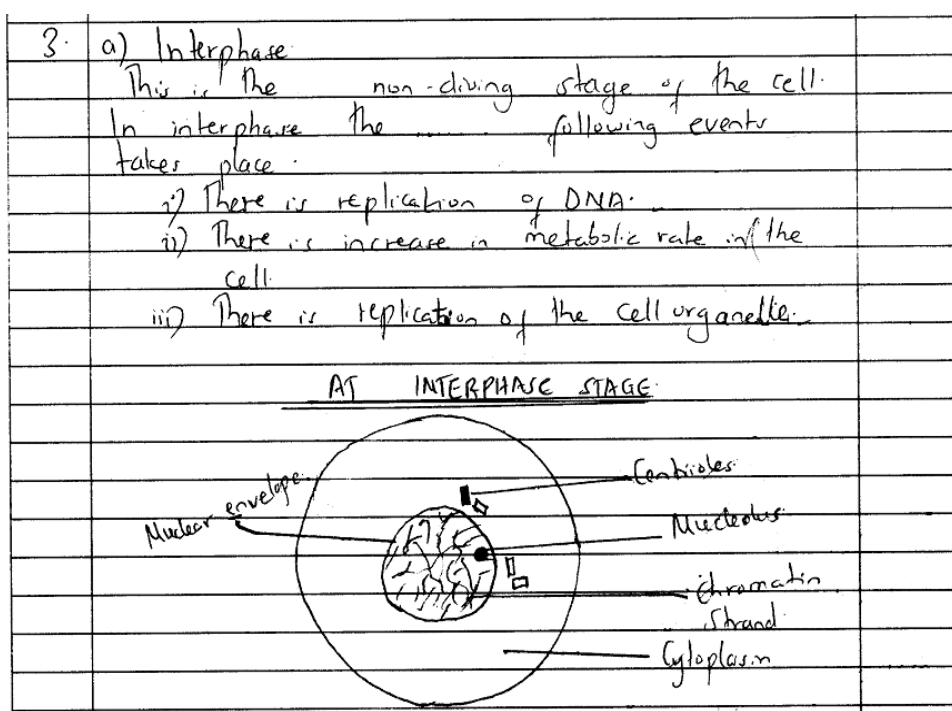 3. a) Interphase.
This is the non-diving stage of the cell.
In interphase the ........ following events
takes place.
i) There is replication of DNA.
ii) There is increase in metabolic rate in the
cell.
iii) There is replication of the cell organelle.
AT INTERPHASE STAGE.
Centrioles.
Nuclear envelope.
Nucleolus.
Chromatin
Strand
Cytoplasm